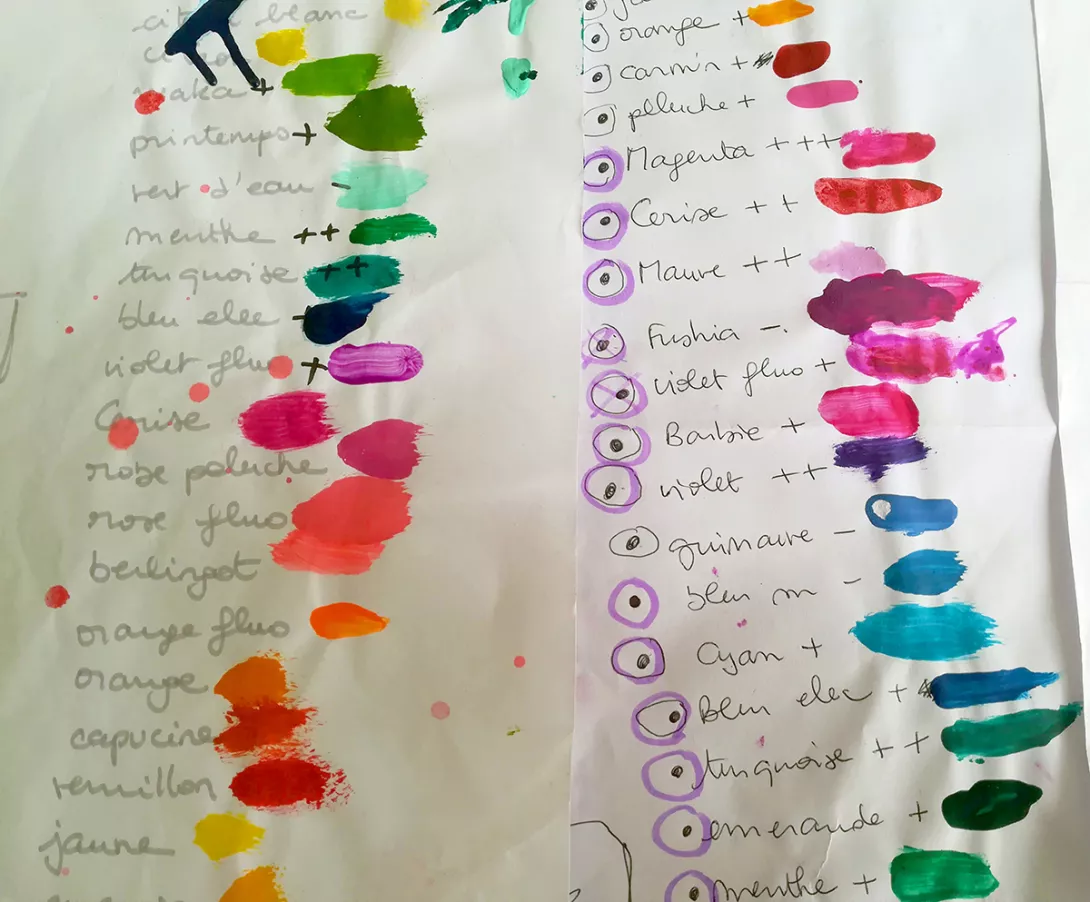 blanc
+
printemps +
vert d'eau -
menthe ++
turquoise ++
bleu elec -
violet fluo +
Cerise
rose peluche
rose fluo
berlingot
orange fluo
orange
capucine
vermillon
jaune
orange +
carmin +
peluche +
Magenta +++
Cerise ++
Mauve ++
Fushia -.
violet fluo +
Barbie +
violet ++
guimauve -
bleu m -
Cyan +
Bleu elec +
turquoise ++
emeraude +
menthe +